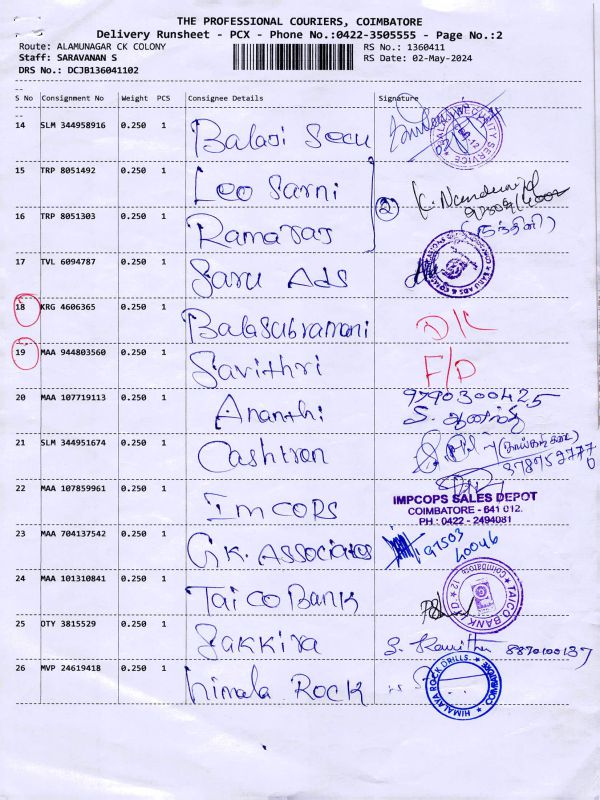 THE PROFESSIONAL COURIERS, COIMBATORE
Delivery Runsheet - PCX - Phone No.:0422-3505555 - Page No.:2
Route: ALAMUNAGAR CK COLONY RS No.: 1360411
Staff: SARAVANAN S RS Date: 02-May-2024
DRS No.: DCJB136041102
S No Consignment No Weight PCS Consignee Details Signature
14 SLM 344958916 0.250 1 Balaji Secu
15 TRP 8051492 0.250 1 Leo Sarni
16 TRP 8051303 0.250 1 Ramaras
2
(நந்தினி)
17 TVL 6094787 0.250 1 Saru ADS
18 KRG 4606365 0.250 1 Balasubramani D/L
19 MAA 944803560 0.250 1 Savithri F/D
20 MAA 107719113 0.250 1 Ananthi 9790300425
S. ஆனந்தி
21 SLM 344951674 0.250 1 Cashtron
22 MAA 107859961 0.250 1 Imcops
IMPCOPS SALES DEPOT
COIMBATORE - 641 012.
PH : 0422 - 2494081
23 MAA 704137542 0.250 1 G.K. Associates 97503
40046
24 MAA 101310841 0.250 1 Taico Bank
TAICO BANK LTD Coimbatore 12
25 OTY 3815529 0.250 1 Sakkira S. Kavitha 8870100137
26 MVP 24619418 0.250 1 Himala Rock
HIMALAYA ROCK DRILLS